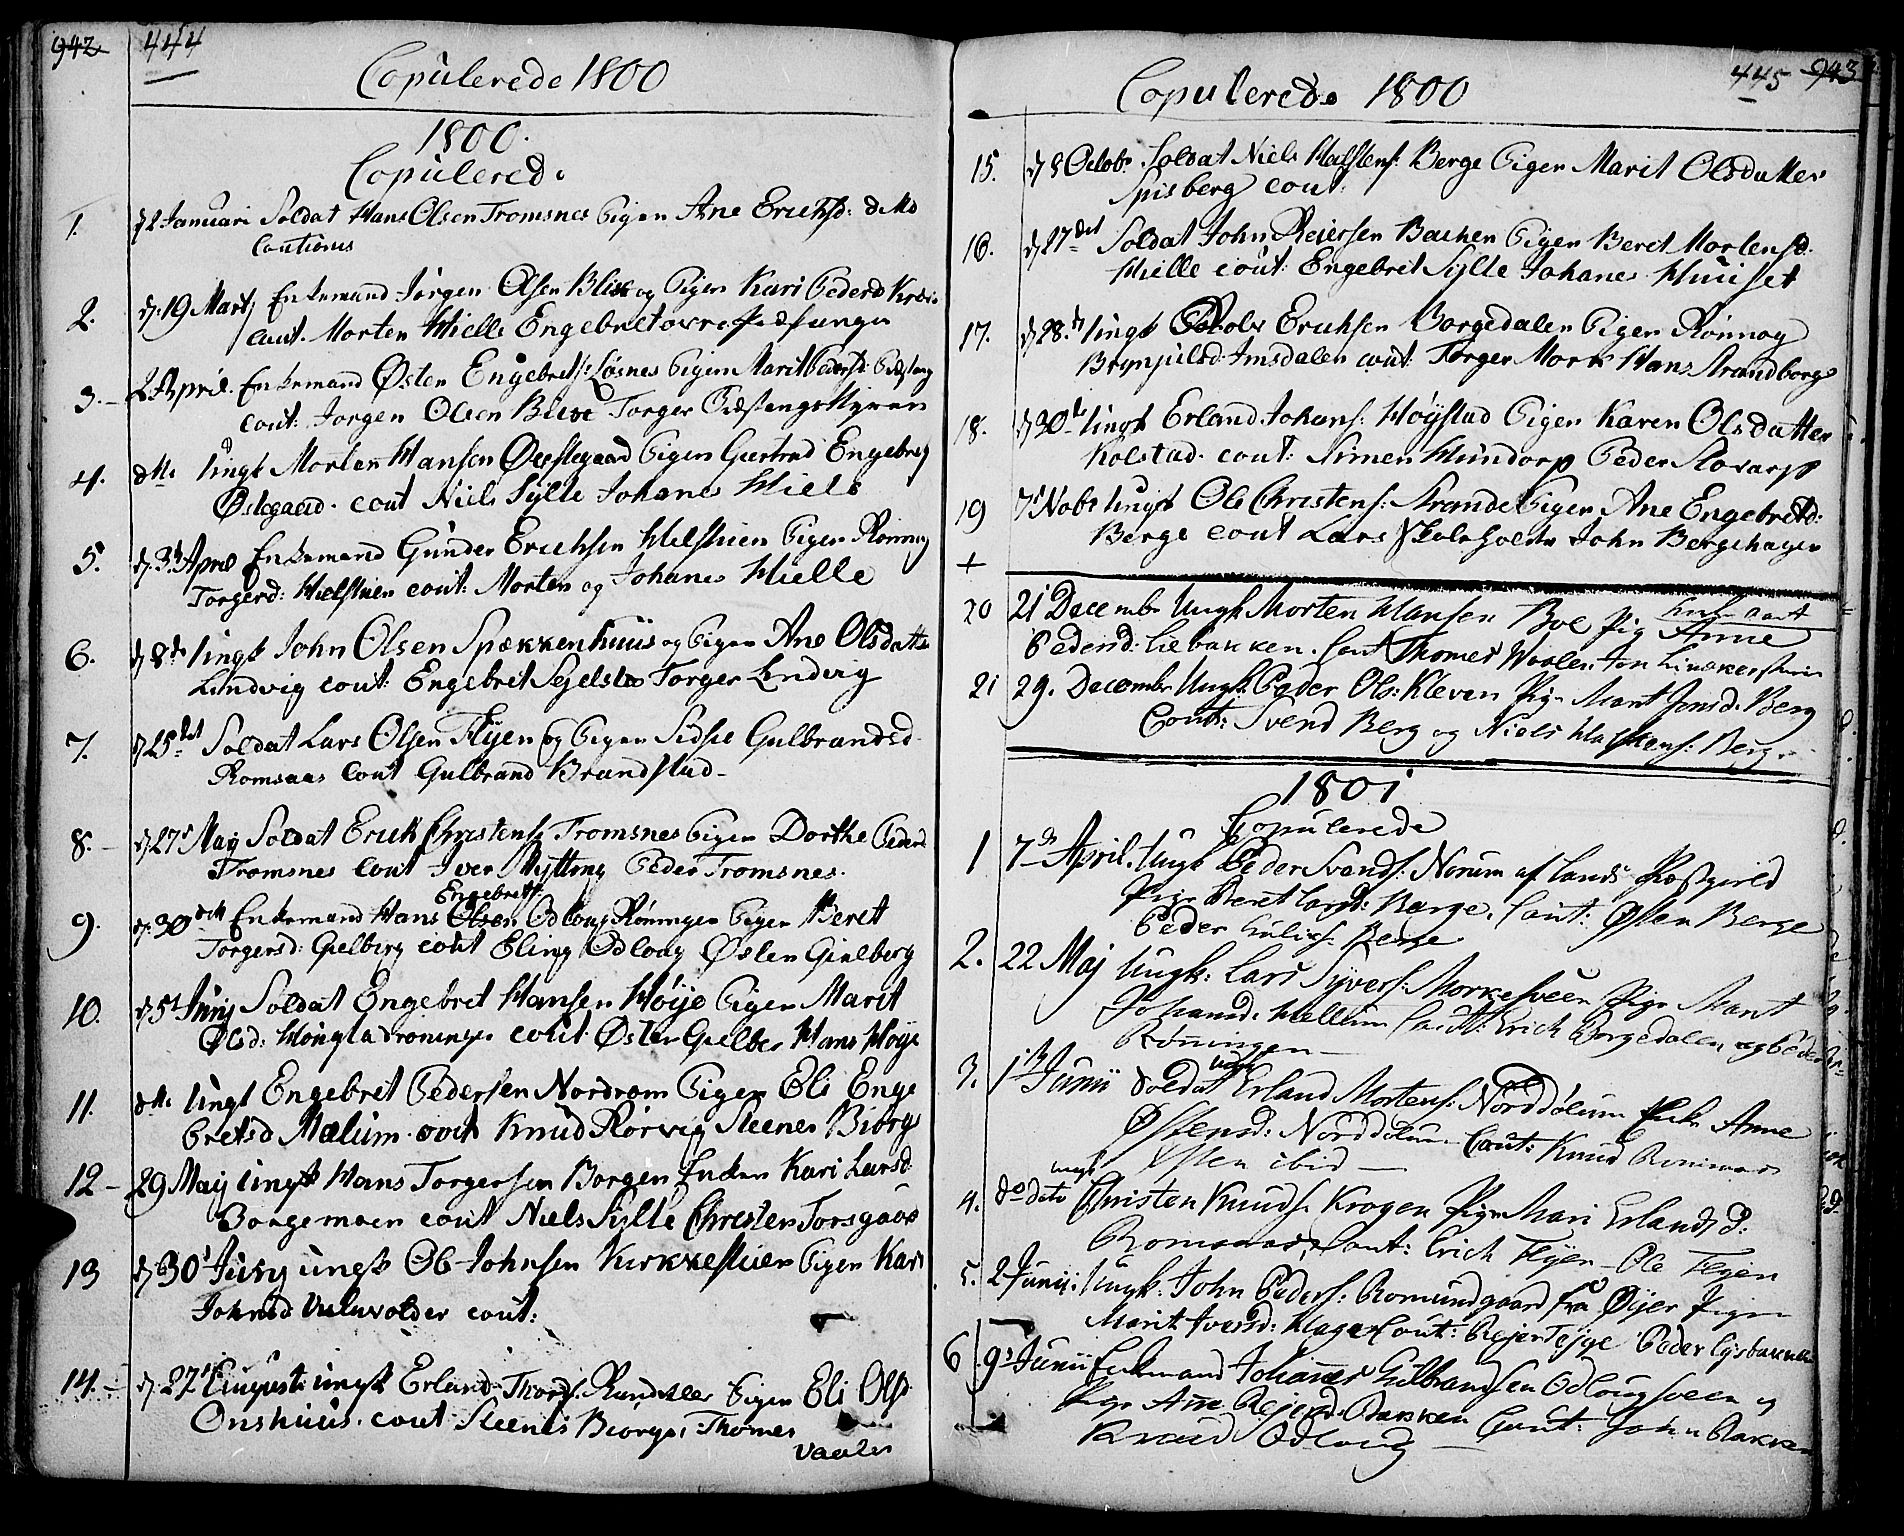 942 444
Copulerede 1800
1800.
Copulerede
1. d 2 Januari Soldat Hans Olsen Tromsnes Pigen Ane Erichsd: ditto
Cautionis
2. d. 19 Marti Enkemand Jørgen Olsen og Pigen Kari Pedersd
Caut. Morten Hielle Engebret
3. 2 April. Enkemand Østen Engebrets: Løsnes Pigen Marit Pedersd:
cout: Jørgen Olsen Torger
4. dtto Ungk Morten Hansen Pigen Giertrud Engebretsd
Østegaard. cout Niels Sylte Johanes Hielle
5. d. 3 April Enkemand Gunder Erichsen Pigen Rønnog
Torgersd: cout: Morten og Johanes Hielle
6. d 8de Ungk John Olsen Spækkenhuus og Pigen Ane Olsdatter
Lindvig cout: Engebret Segelstad Torger Lindvig
7. d 25det Soldat Lars Olsen Flyen og Pigen Sidsie Gulbrandsd.
Romsaas Cout Gulbrand Brandstad
8. d 27 Maij Soldat Erick Christens: Tromsnes Pigen Dorthe Pedersd
Tromsnes Cout Iver Nytting Peder Tromsnes.
Engebrets:
9. d. 30 Enkemand Hans Olsen Odlong Rønningen Pigen Beret
Torgersd: cout Eling Odlong Østen Gielberg
10. d 5t Junij Soldat Engebret Hansen Høije Pigen Marit
Olsd: cout Østen Hans Høye
11. dtto Ungk Engebret Pedersen Nordrom Pigen Eli Enge
bretsd Mælum. cout Knud Rørvig Steener Biørge
12 29 Maij Ungk Hans Torgersen Borgen Enken Kari Larsd:
cout Niels Sylte Christen Forsgaar
13 d. 30 Junij ungk Ole Johnsen Kirkestuen Pigen Kari
Johnsd cout:
14. d. 27 Augusti ungk Erland Thords: Pigen Eli Olsd
Onshuus. cout Steenes Biørge, Thomes
Vaalen
445 943
Copulerede 1800
15. d 8 Octob. Soldat Niels Halstens: Berge Pigen Marit Olsdatter
Spisberg cout:
16. d. 27det Soldat John Reiersen Bachen Pigen Beret Mortensd.
Hielle cout: Engebret Sylte Johanes Huuset
17. d. 28. Ungk Erichsen Borgedalen Pigen Rønnog
Brynjulsd: Amsdalen cout: Torger Mork Hans Strandborg
18. d 30te Ungk Erland Johans: Høystad Pigen Karen Olsdatter
Kolstad. cout: Simen Hundorp Peder
19 7 Nobr Ungk Ole Christens: Strande Pigen Ane Engebretsd:
Berge cout Lars John Bergehagen
+
20 21 Decembr Ungk. Morten Hansen Boe Pig Anne
Pedersd: Liebakken. Caut Thomes Vaalen Jon
21 29. Decembr Ungk. Peder Ols: Kleven Pige Marit Jonsd: Berg
Cout: Svend Berg og Niels Halstens: Berg.
1801
Copulerede
1 7de April. Ungk Peder Svends: Norum af Lands Præstgield
Pige Beret Larsd: Berge. Caut: Østen Berge
Peder Berge
2. 22 Maj Ungk: Lars Syvers: Morkesveen Pige Marit
Johansd: Mellum Caut: Erich Borgedalen og Peder
Rønningen
3. 1 Junii Soldat Erland Mortens: Norddølum Anne
Østensd: Norddølum Caut: Knud
Østen ibid
4. do dato ungk Christen Knuds: Krogen Pige Mari Erlandsd:
Romsaas, Caut: Erich Flyen Ole Flyen
5. 2 Junii: Ungk: John Peders: Romundgaard fra Øyer Pigen
Marit Iversd: Caut: Rejer Peder
6 9 Junii Enkemand Johannes Gulbrandsen Odlougsveen og
Pige Ane Rejersd: Bakken Caut: John Bakken
Knud Odloug